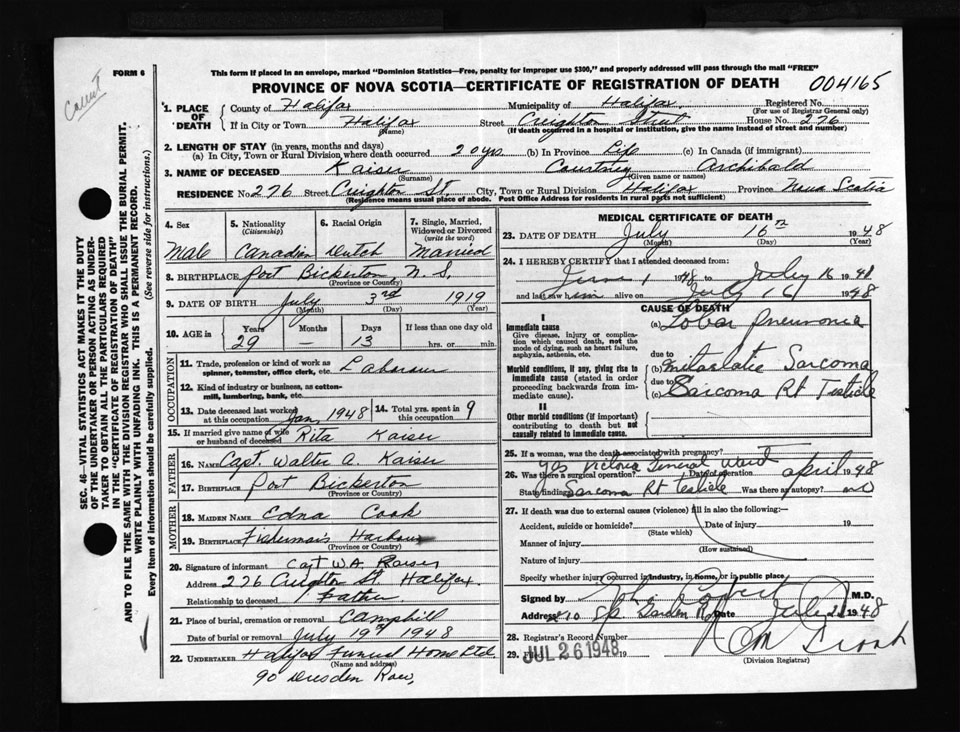 Cancer
FORM 6
This form if placed in an envelope, marked "Dominion Statistics—Free, penalty for improper use $300," and properly addressed will pass through the mail "FREE"
PROVINCE OF NOVA SCOTIA—CERTIFICATE OF REGISTRATION OF DEATH
004165
1. PLACE OF DEATH
County of Halifax Municipality of Halifax. Registered No.
(For use of Registrar General only)
If in City or Town Halifax Street Creighton Street House No. 276
(Name) (If death occurred in a hospital or institution, give the name instead of street and number)
2. LENGTH OF STAY (in years, months and days)
(a) In City, Town or Rural Division where death occurred 20 yrs (b) In Province Life (c) In Canada (if immigrant)
3. NAME OF DECEASED Kaiser Courtney Archibald
(Surname) (Given name or names)
RESIDENCE No. 276 Street Creighton St. City, Town or Rural Division Halifax Province Nova Scotia
(Residence means usual place of abode. Post Office Address for residents in rural parts not sufficient)
4. Sex 5. Nationality (Citizenship) 6. Racial Origin 7. Single, Married, Widowed or Divorced (write the word)
Male Canadian Dutch Married
8. BIRTHPLACE Port Bickerton, N. S.
(Province or Country)
9. DATE OF BIRTH July 3rd 1919
(Month) (Day) (Year)
10. AGE in Years Months Days If less than one day old
29 — 13 hrs. or min.
OCCUPATION
11. Trade, profession or kind of work as spinner, teamster, office clerk, etc. Labourer
12. Kind of industry or business, as cotton-mill, lumbering, bank, etc.
13. Date deceased last worked at this occupation Jan, 1948 14. Total yrs. spent in this occupation 9
15. If married give name of wife or husband of deceased Rita Kaiser
FATHER
16. NAME Capt. Walter A. Kaiser
17. BIRTHPLACE Port Bickerton
(Province or Country)
MOTHER
18. MAIDEN NAME Edna Cook
19. BIRTHPLACE Fisherman's Harbour
(Province or Country)
20. Signature of informant Capt W.A. Kaiser
Address 276 Creighton St. Halifax.
Relationship to deceased Father
21. Place of burial, cremation or removal Camphill
Date of burial or removal July 19th 1948
22. UNDERTAKER Halifax Funeral Home Ltd.
(Name and address)
90 Dresden Row,
MEDICAL CERTIFICATE OF DEATH
23. DATE OF DEATH July 16th 1948
(Month) (Day) (Year)
24. I HEREBY CERTIFY that I attended deceased from:
June 1 1948 to July 16 1948
and last saw him alive on July 16 1948
CAUSE OF DEATH
I
Immediate cause
Give disease, injury or complication which caused death, not the mode of dying, such as heart failure, asphyxia, asthenia, etc.
(a) Lobar Pneumonia
due to
Morbid conditions, if any, giving rise to immediate cause (stated in order proceeding backwards from immediate cause).
(b) Metastatic Sarcoma
due to
(c) Sarcoma Rt Testicle
II
Other morbid conditions (if important) contributing to death but not causally related to immediate cause.
25. If a woman, was the death associated with pregnancy?
26. Was there a surgical operation? Yes Victoria General Ward Date of operation April 1948
State findings Sarcoma Rt testicle Was there an autopsy? no
27. If death was due to external causes (violence) fill in also the following:—
Accident, suicide or homicide? Date of injury 19
(State which)
Manner of injury
(How sustained)
Nature of injury
Specify whether injury occurred in industry, in home, or in public place
Signed by M.D.
Address Garden Rd Date July 1948
28. Registrar's Record Number
29. Filed JUL 26 1948 19
(Division Registrar)
SEC. 46—VITAL STATISTICS ACT MAKES IT THE DUTY OF THE UNDERTAKER OR PERSON ACTING AS UNDERTAKER TO OBTAIN ALL THE PARTICULARS REQUIRED IN THE "CERTIFICATE OF REGISTRATION OF DEATH" AND TO FILE THE SAME WITH THE DIVISION REGISTRAR WHO SHALL ISSUE THE BURIAL PERMIT.
WRITE PLAINLY WITH UNFADING INK. THIS IS A PERMANENT RECORD.
Every item of information should be carefully supplied. (See reverse side for instructions.)